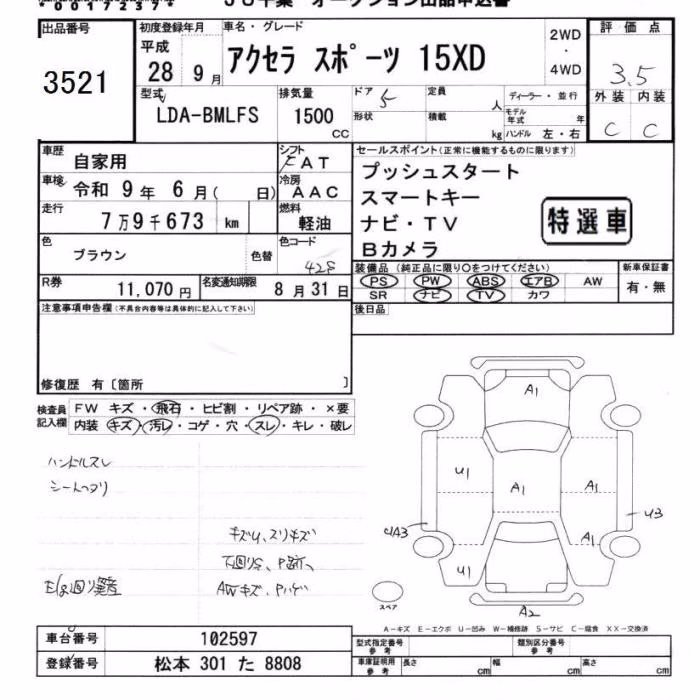 出品番号
3521
初度登録年月
平成
28 9月
車名・グレード
アクセラ スポーツ 15XD
2WD
・
4WD
評価点
3.5
外装 内装
C C
型式
LDA-BMLFS
排気量
1500
CC
ドア
5
形状
定員
人
積載
kg
ディーラー・並行
モデル年式 年
ハンドル 左・右
車歴
自家用
シフト
FAT
車検
令和 9年 6月( 日)
冷房
AAC
走行
7万9千673 km
燃料
軽油
色
ブラウン
色替
色コード
42S
R券
11,070円
名変通知期限
8月31日
セールスポイント(正常に機能するものに限ります)
プッシュスタート
スマートキー
ナビ・TV
Bカメラ
特選車
装備品(純正品に限り○をつけてください)
PS PW ABS エアB AW
SR ナビ TV カワ
新車保証書
有・無
後日品
注意事項申告欄(不具合内容等は具体的に記入して下さい)
修復歴 有〔箇所 〕
検査員記入欄
FW キズ・飛石・ヒビ割・リペア跡・×要
内装 キズ・汚レ・コゲ・穴・スレ・キレ・破レ
ハンドルスレ
キズU、スリキズ
下回りS、P跡
AWキズ、Pハゲ
A1
U1
A1
A1
UA3
U3
A1
U1
A2
スペア
A-キズ E-エクボ U-凹み W-補修跡 S-サビ C-腐食 XX-交換済
車台番号
102597
登録番号
松本 301 た 8808
型式指定番号
参考
類別区分番号
参考
車庫証明用
参考
長さ cm
幅 cm
高さ cm